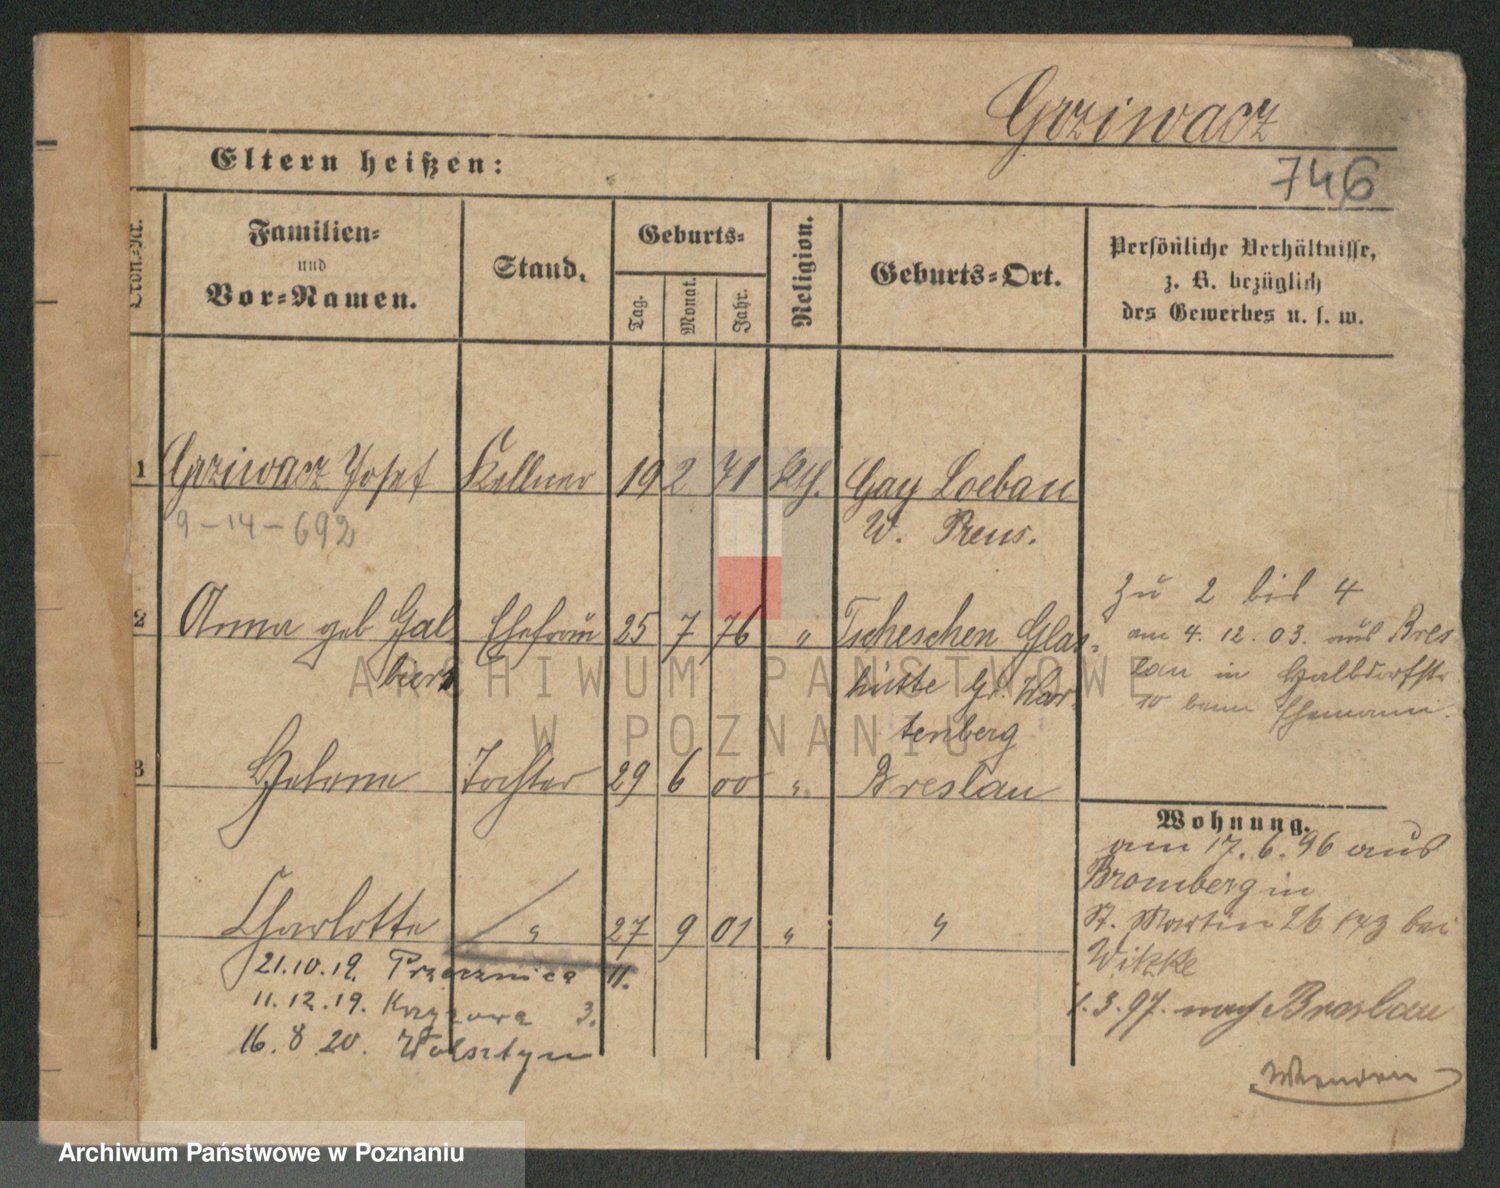 Grziwacz
746
Eltern heißen:
Familien-
und
Vor-Namen.
Stand.
Geburts-
Tag.
Monat.
Jahr.
Religion.
Geburts-Ort.
Persönliche Verhältnisse,
z. B. bezüglich
des Gewerbes u. s. w.
1 Grziwacz Josef Kellner 19 2 71 kth. Gay Loebau
9-14-692 W. Preus.
zu 2 bis 4
2 Anna geb Gal Ehefrau 25 7 76 " Tscheschen Glas-
am 4. 12. 03. aus Bres
bierz hütte Gr. War-
lau in Halbdorfstr.
10 beim Ehemann.
tenberg
3 Helene Tochter 29 6 00 " Breslau
Wohnung.
am 17. 6. 96 aus
Bromberg in
Charlotte " 27 9 01 " "
St. Martin 26 bei
21.10.19. Przecznica 11.
Witzke
11.12.19. Krzyżowa 3.
1.3.97. nach Breslau
16.8.20. Wolsztyn
Wenden
ARCHIWUM PAŃSTWOWE
W POZNANIU
Archiwum Państwowe w Poznaniu